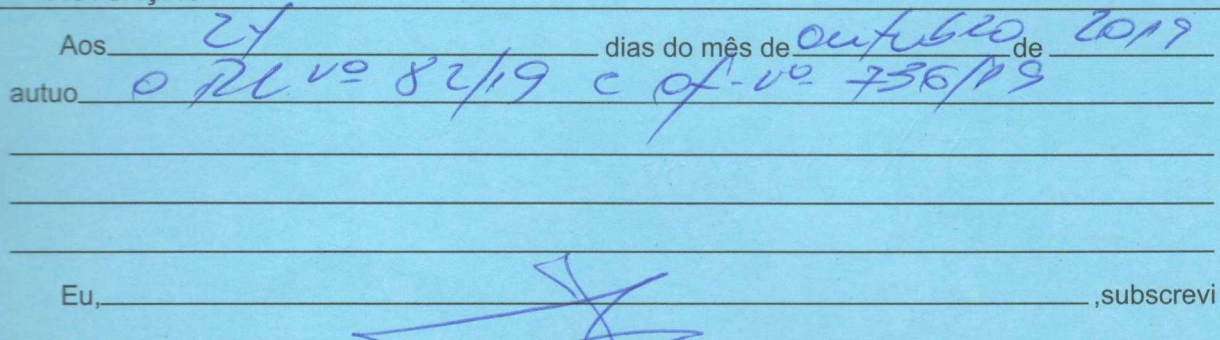 Aos 21 dias do mês de outubro de 2019
autuo o PL nº 82/19 e of. nº 736/19
Eu, ,subscrevi